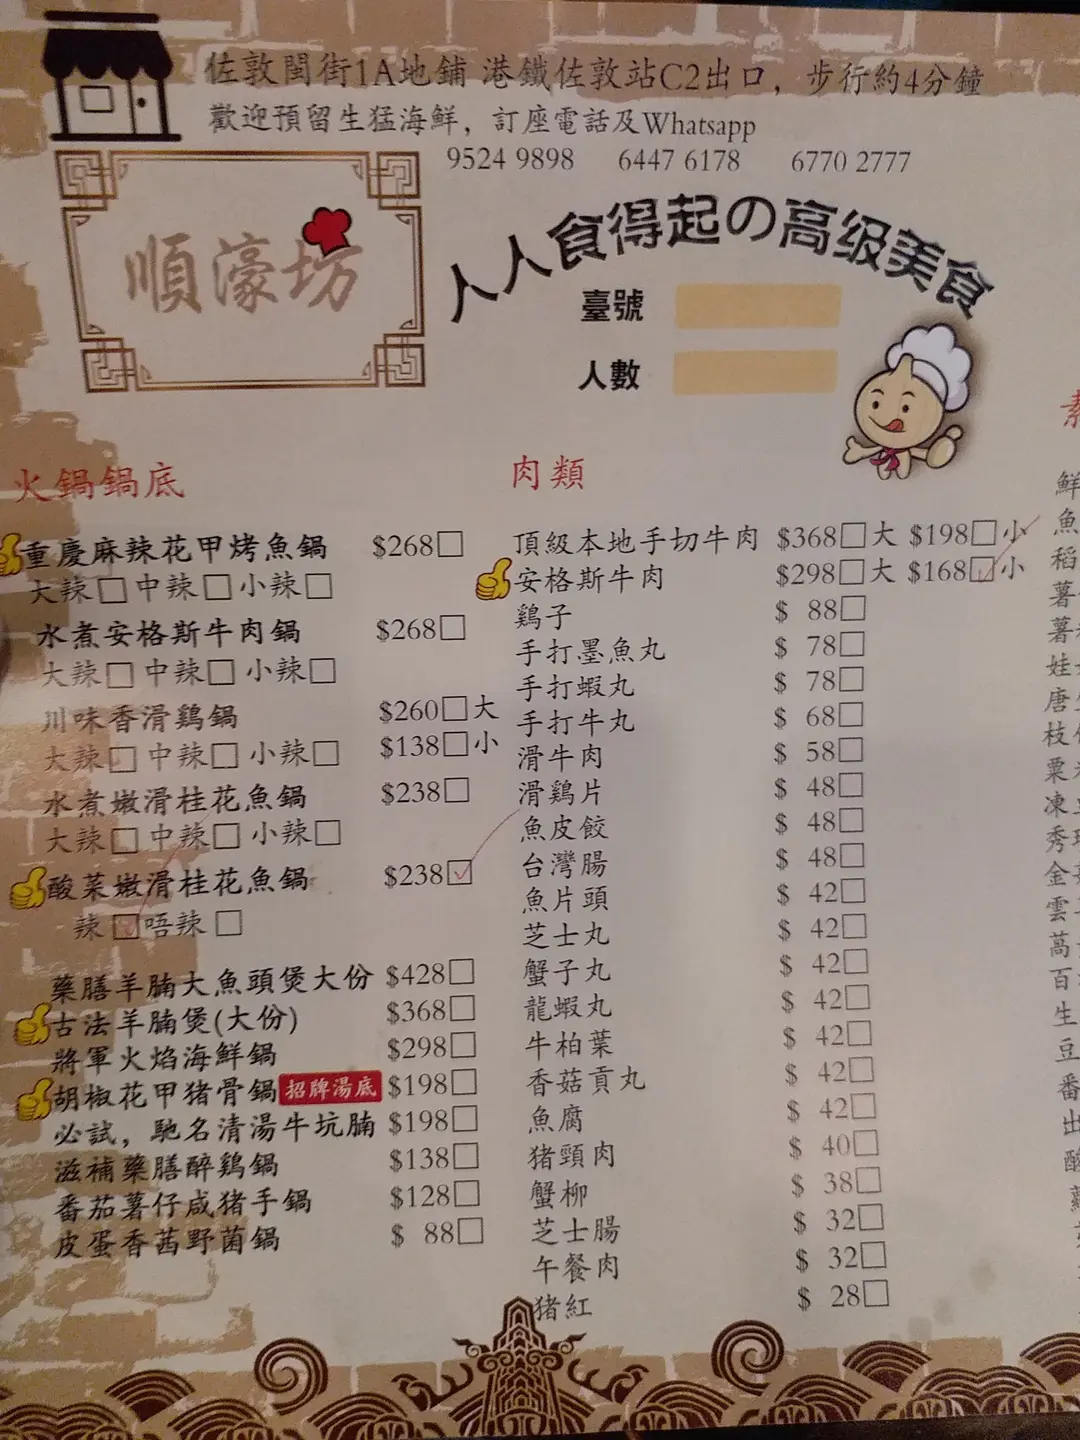 佐敦閩街1A地鋪 港鐵佐敦站C2出口，步行約4分鐘
歡迎預留生猛海鮮，訂座電話及Whatsapp
9524 9898 6447 6178 6770 2777
順濠坊
人人食得起の高级美食
臺號
人數
火鍋鍋底
重慶麻辣花甲烤魚鍋 $268□
大辣□中辣□小辣□
水煮安格斯牛肉鍋 $268□
大辣□中辣□小辣□
川味香滑鷄鍋 $260□大
$138□小
大辣□中辣□小辣□
水煮嫩滑桂花魚鍋 $238□
大辣□中辣□小辣□
酸菜嫩滑桂花魚鍋 $238☑
辣☑唔辣□
藥膳羊腩大魚頭煲大份 $428□
古法羊腩煲(大份) $368□
將軍火焰海鮮鍋 $298□
胡椒花甲猪骨鍋 招牌湯底 $198□
必試，馳名清湯牛坑腩 $198□
滋補藥膳醉鷄鍋 $138□
番茄薯仔咸猪手鍋 $128□
皮蛋香茜野菌鍋 $ 88□
肉類
頂級本地手切牛肉 $368□大 $198□小
安格斯牛肉 $298□大 $168☑小
鷄子 $ 88□
手打墨魚丸 $ 78□
手打蝦丸 $ 78□
手打牛丸 $ 68□
滑牛肉 $ 58□
滑鷄片 $ 48□
魚皮餃 $ 48□
台灣腸 $ 48□
魚片頭 $ 42□
芝士丸 $ 42□
蟹子丸 $ 42□
龍蝦丸 $ 42□
牛柏葉 $ 42□
香菇貢丸 $ 42□
魚腐 $ 42□
猪頸肉 $ 40□
蟹柳 $ 38□
芝士腸 $ 32□
午餐肉 $ 32□
猪紅 $ 28□
鮮
魚
稻
薯
薯
娃
唐
枝
粟
凍
秀
金
雲
萵
百
生
豆
番
出
酸